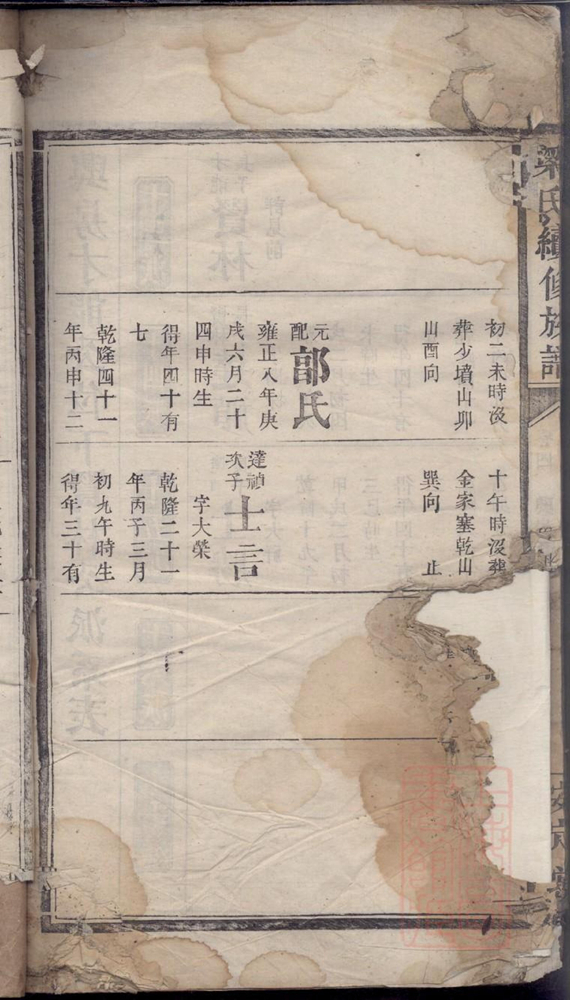 氏續修族譜
初二未時沒
葬少墳山卯
山酉向
元配部氏
雍正八年庚
戌六月二十
四申時生
得年四十有
七
乾隆四十一
年丙申十二
十午時沒葬
金家塞乾山
巽向 止
達禎次子士言
字大榮
乾隆二十一
年丙子三月
初九午時生
得年三十有